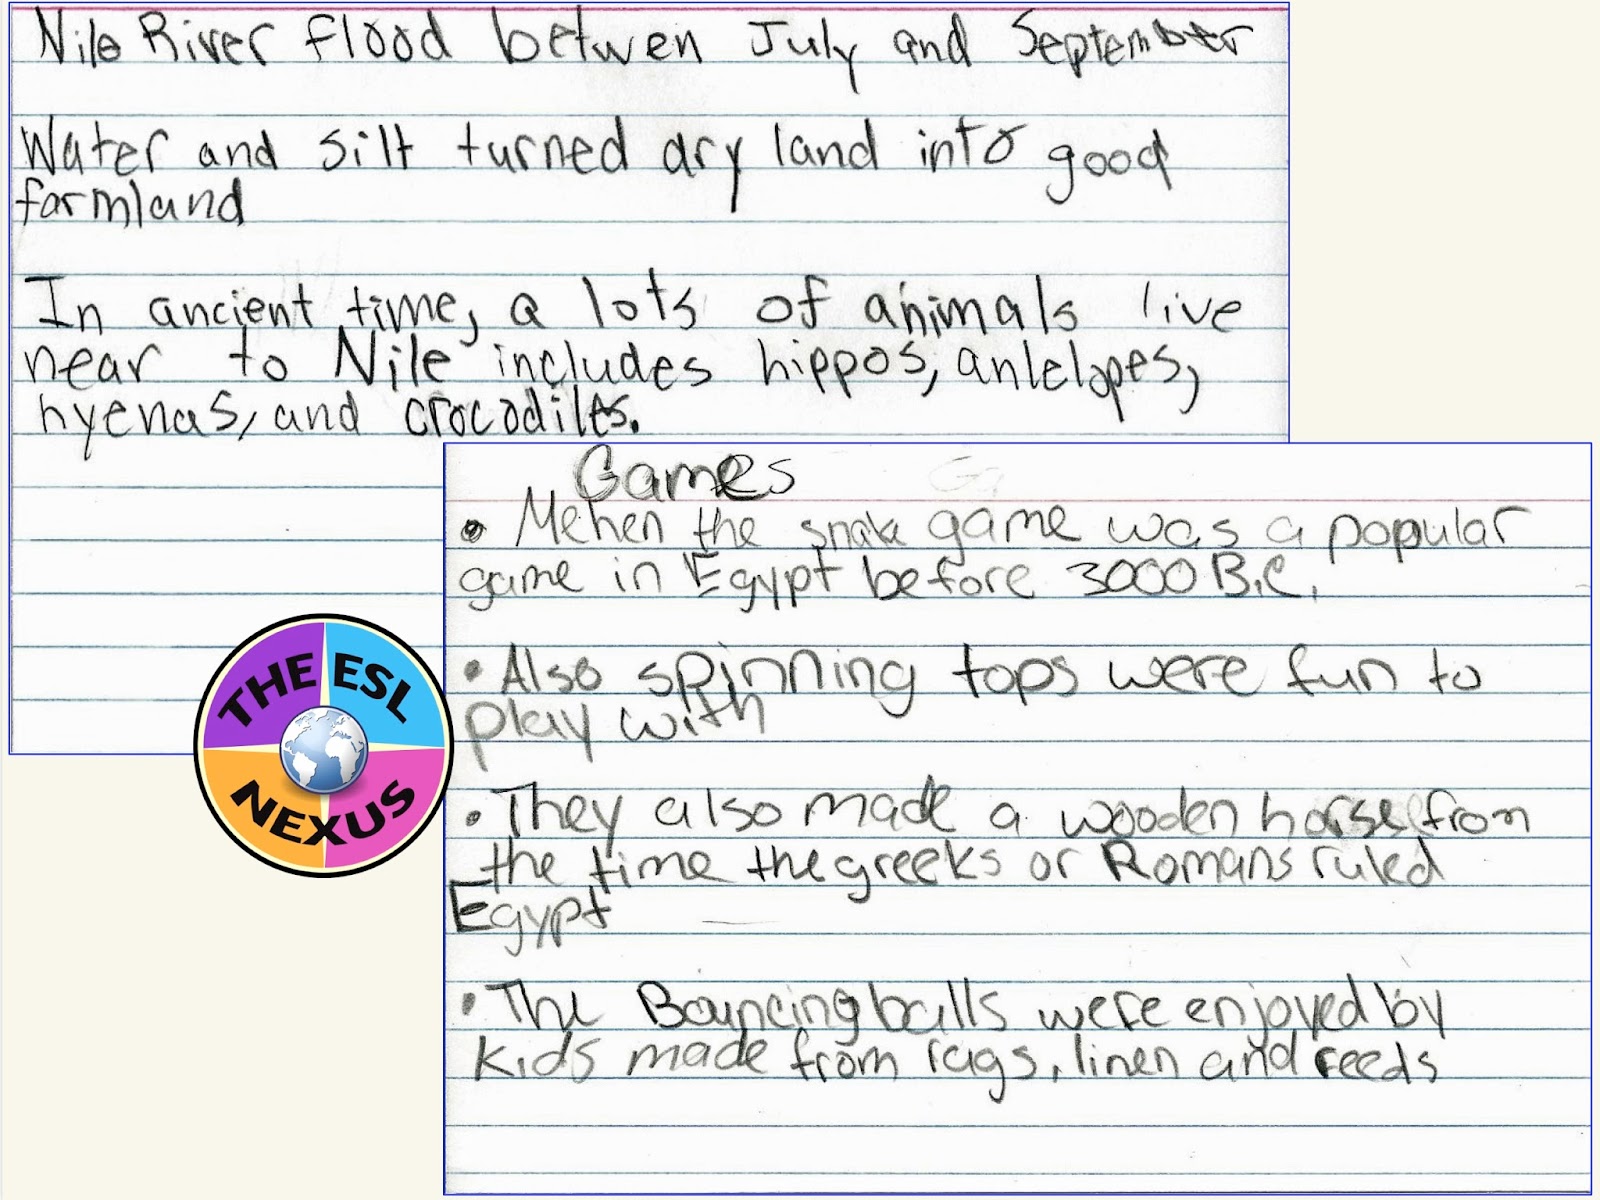 Nile River flood betwen July and September
Water and silt turned dry land into good
farmland
In ancient time, a lots of animals live
near to Nile includes hippos, antelopes,
hyenas, and crocodiles.
Games
• Mehen the snake game was a popular
game in Egypt before 3000 B.C.
• Also spinning tops were fun to
play with
• They also made a wooden horse from
the time the greeks or Romans ruled
Egypt
• The Bouncing balls were enjoyed by
kids made from rags, linen and reeds
THE ESL
NEXUS